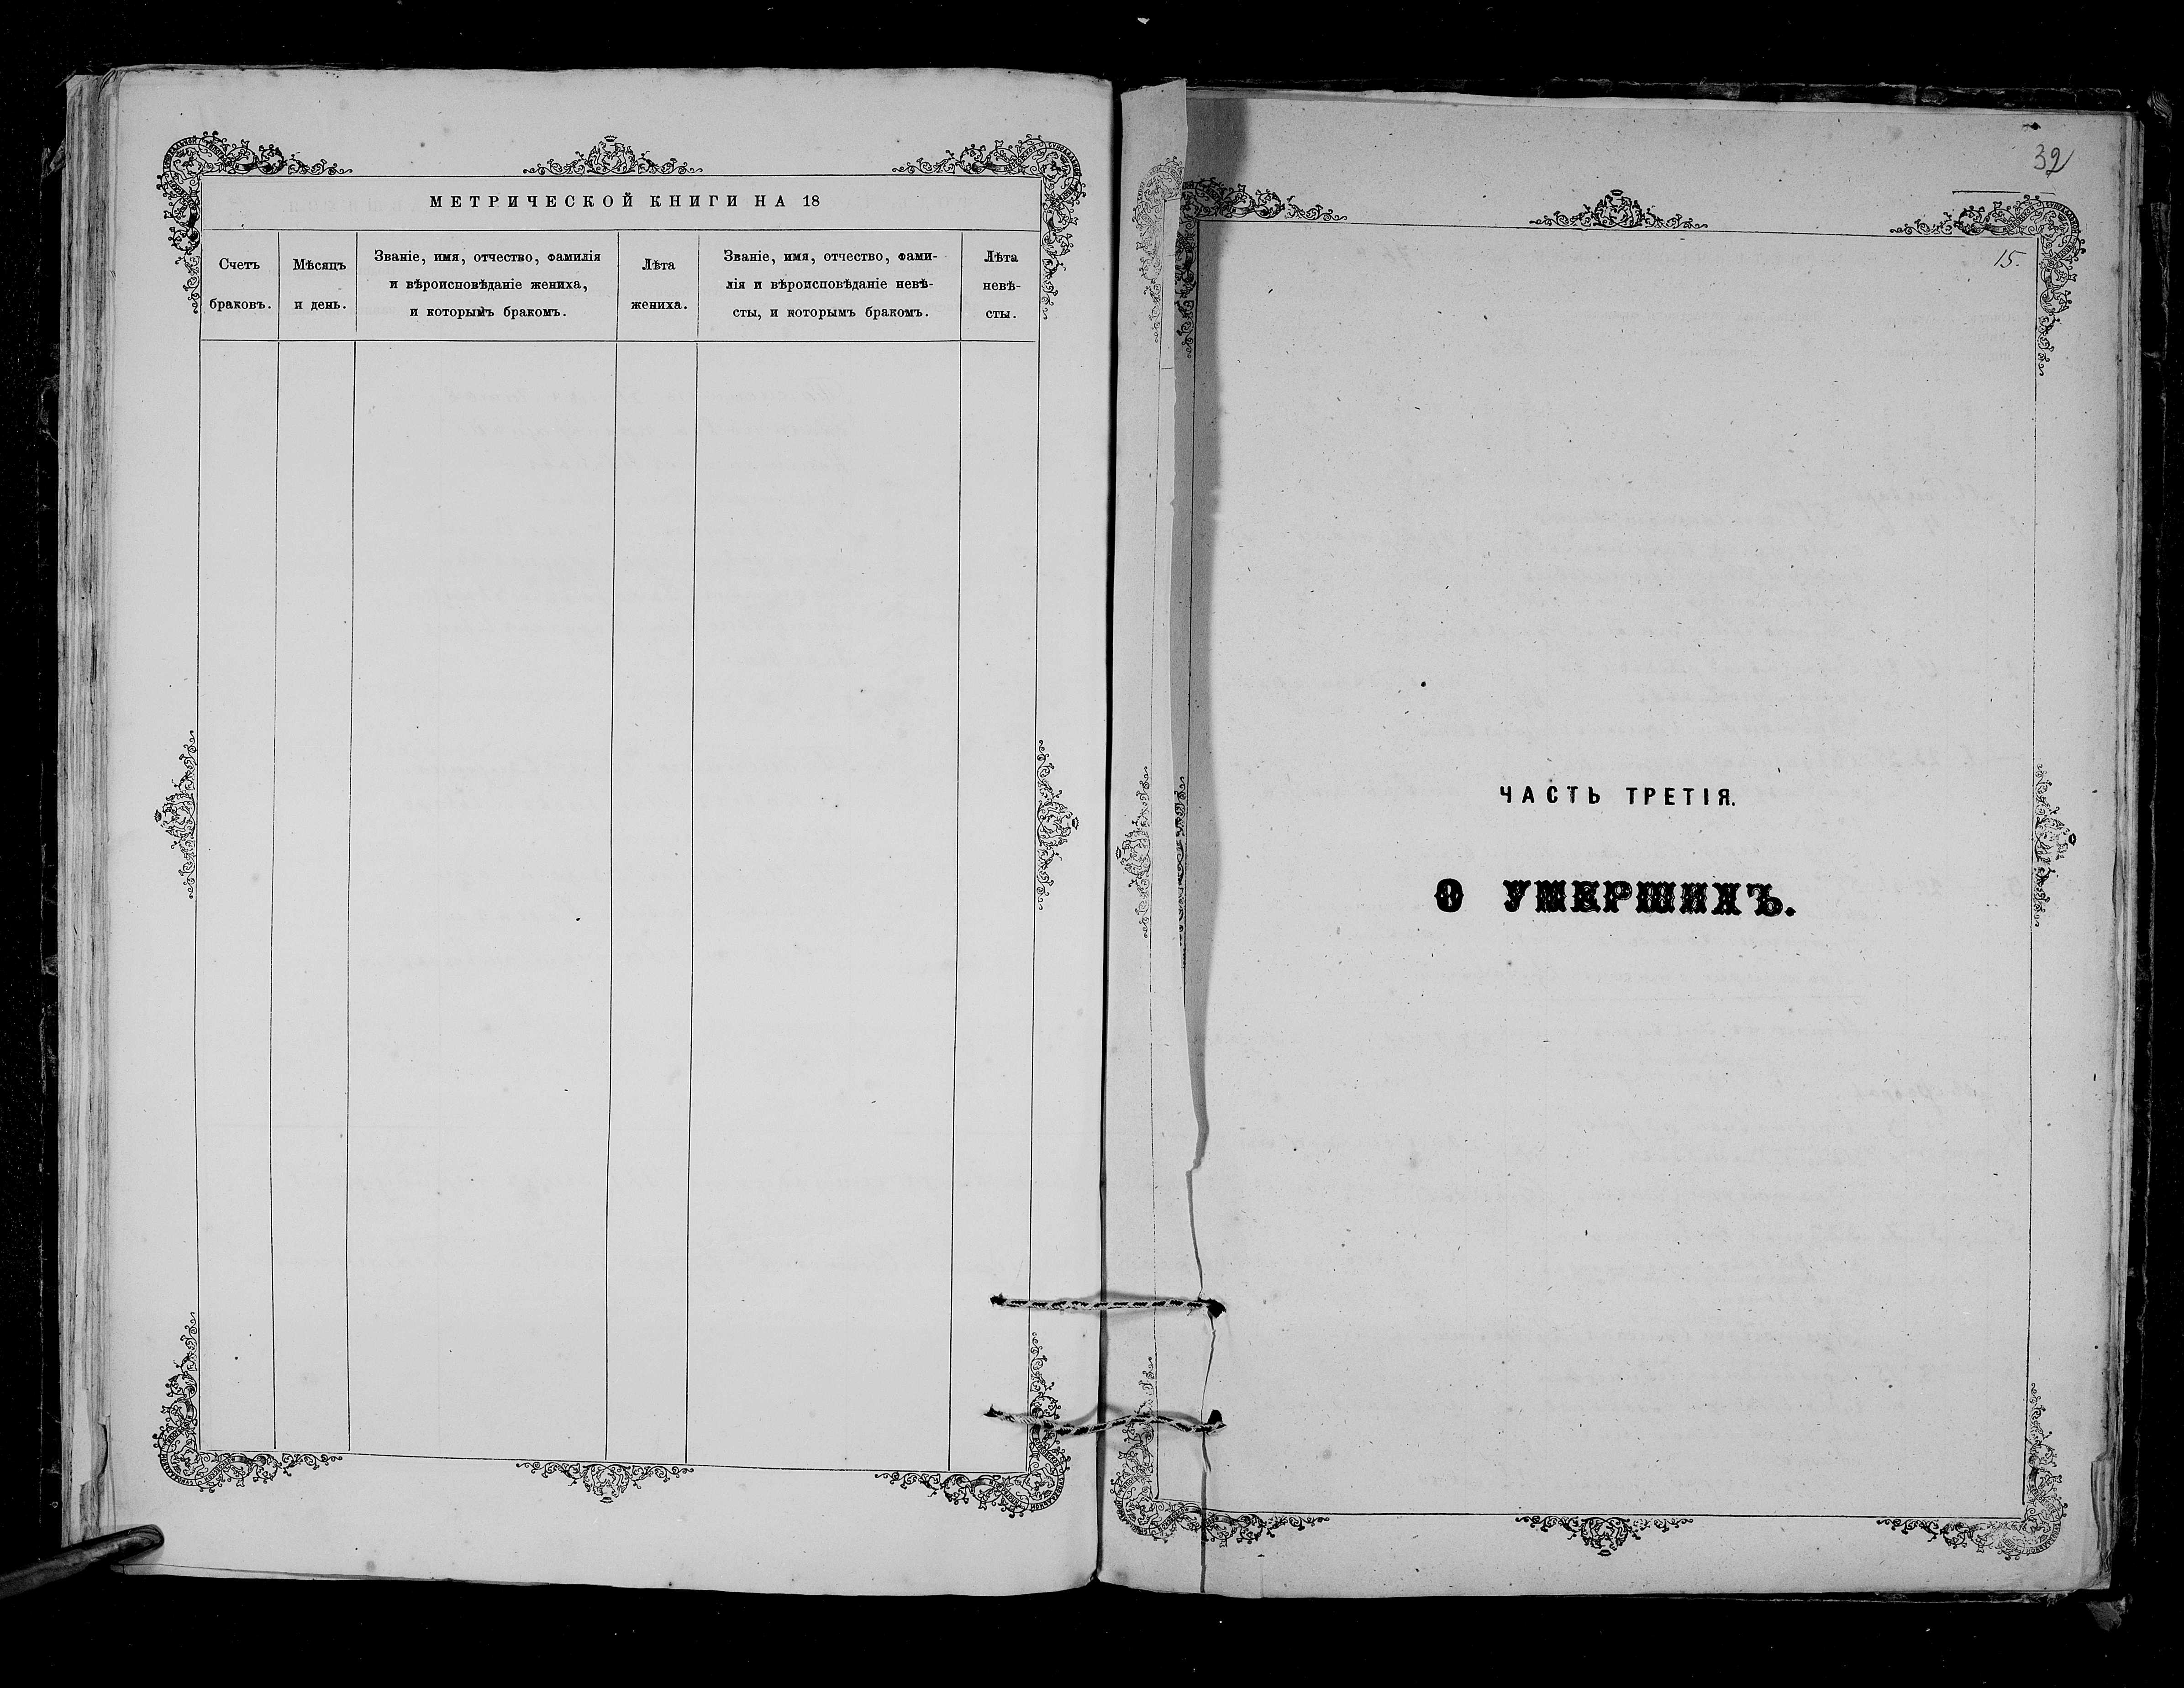 МЕТРИЧЕСКОЙ КНИГИ НА 18
Счетъ
браковъ.
Мѣсяцъ
и день.
Званіе, имя, отчество, фамилія
и вѣроисповѣданіе жениха,
и которымъ бракомъ.
Лѣта
жениха.
Званіе, имя, отчество, фами-
лія и вѣроисповѣданіе невѣ-
сты, и которымъ бракомъ.
Лѣта
невѣ-
сты.
32
15.
ЧАСТЬ ТРЕТІЯ.
О УМЕРШИХЪ.